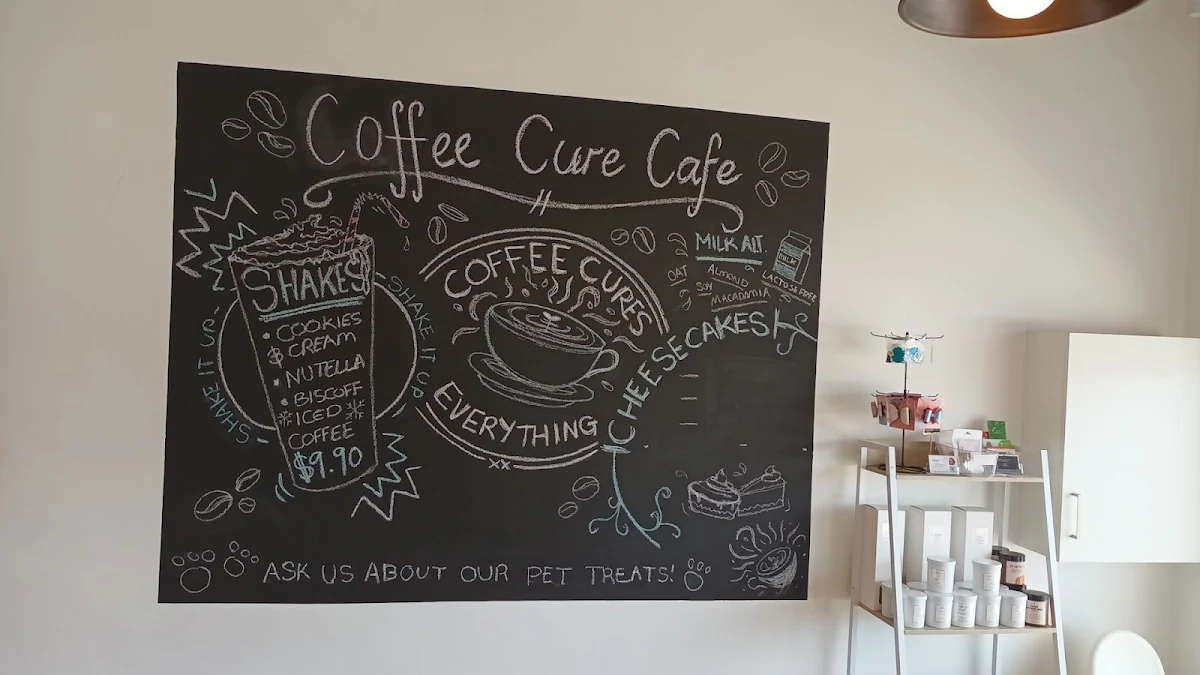 Coffee Cure Cafe
SHAKES
• COOKIES
& CREAM
• NUTELLA
• BISCOFF
ICED
COFFEE
$9.90
SHAKE IT US
SHAKE IT UP
COFFEE CURES
EVERYTHING
MILK ALT.
MILK
OAT
ALMOND
LACTOSE FREE
SOY
MACADAMIA
CHEESECAKES
ASK US ABOUT OUR PET TREATS!